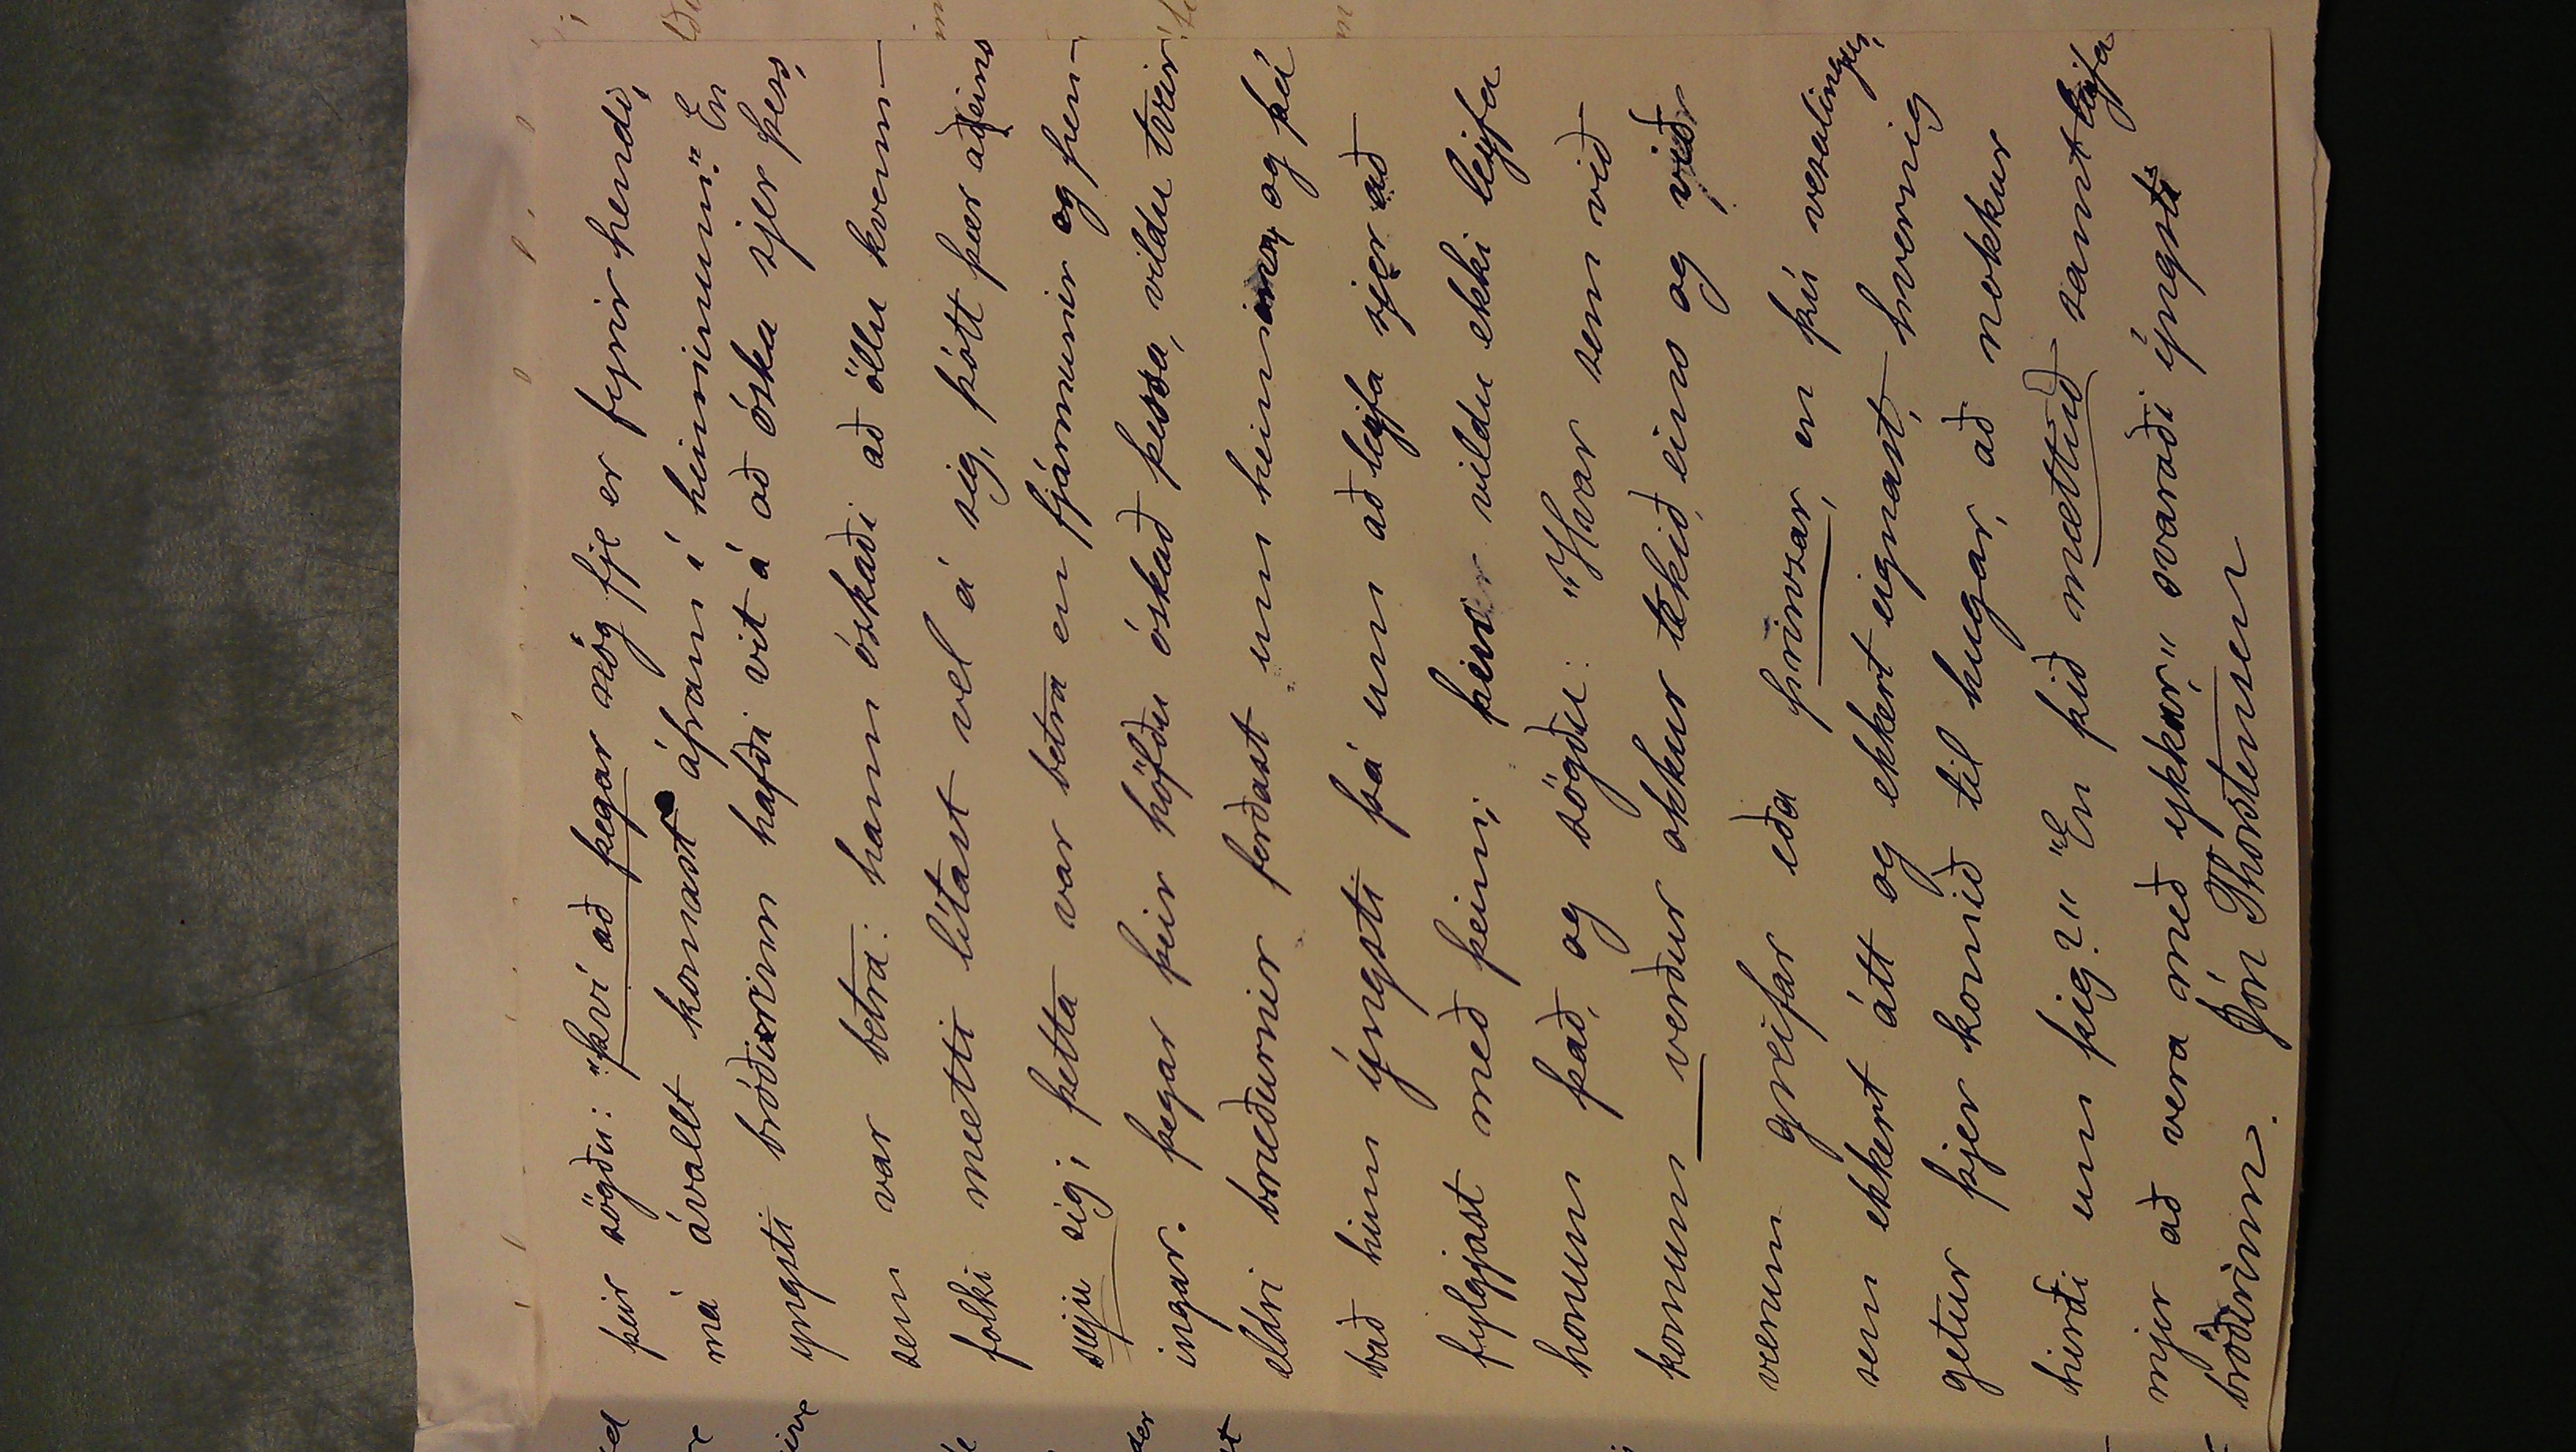 þeir sögðu: "því að þegar nóg fje er fyrir hendi,
má ávallt komast áfram í heiminum." En
yngsti bróðirinn hafði vit á að óska sjer þess,
sem var betra: hann óskaði að öllu kvenn-
fólki mætti lítast vel á sig, þótt þær aðeins
sæju sig; þetta var betra en fjármunir og pen-
ingar. Þegar þeir höfðu óskað þessa, vildu tveir
eldri bræðurnir ferðast um heiminn, og þá
bað hinn ýngsti þá um að leyfa sjer að
fylgjast með þeim; þeir vildu ekki leyfa
honum það, og sögðu: "Hvar sem við
komum verður okkur tekið eins og við
værum greifar eða prinsar, en þú vesalingur,
sem ekkert átt og ekkert eignast, hvernig
getur þjer komið til hugar, að nokkur
hirði um þig?" "En þið mættuð samt leyfa
mjer að vera með ykkur," svaraði ýngsti
bróðirinn. Jón Thorstensen